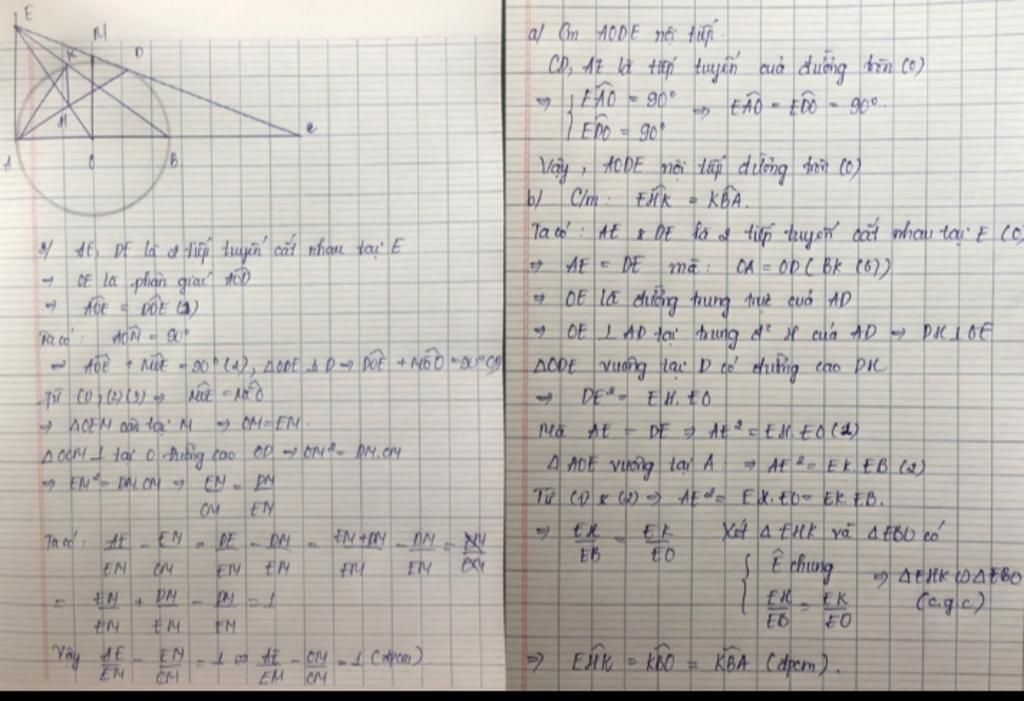 E
M
K
D
H
A
O
B
C
2/ AE, DE là 2 tiếp tuyến cắt nhau tại E
→ OE là phân giác AOD
→ AOE = DOE (1)
Ta có: AOM = 90°
→ AOE + MOE = 90° (2), ΔODE ⊥ D → DOE + MEO = 90° (3)
Từ (1), (2) (3) → MOE = MEO
→ ΔOEM cân tại M → OM = EM.
ΔOCM ⊥ tại O đường cao OD → OM² = DM.CM
→ EM² = DM.CM → EM/CM = DM/EM
Ta có: AE/EM - EM/CM = DE/EM - DM/EM = EM+DM/EM - DM/EM
= EM/EM + DM/EM - DM/EM = 1
Vậy AE/EM - EM/CM = 1 ⇔ AE/EM - OM/CM = 1 (đpcm).
a/ Cm AODE nội tiếp
CD, AE là tiếp tuyến của đường tròn (O)
⇒ { EAO = 90° ⇒ EAO = EDO = 90°.
EDO = 90°
Vậy, AODE nội tiếp đường tròn (O)
b) C/m: EHK = KBA.
Ta có: AE & DE là 2 tiếp tuyến cắt nhau tại E (O
⇒ AE = DE mà: OA = OD (BK (O))
⇒ OE là đường trung trực của AD
⇒ OE ⊥ AD tại trung đ² H của AD ⇒ DH ⊥ OE
ΔODE vuông tại D có đường cao DH
⇒ DE² = EH.EO
Mà AE = DE ⇒ AE² = EH.EO (1)
ΔAOE vuông tại A: ⇒ AE² = EK.EB (2)
Từ (1) & (2) ⇒ AE² = EH.EO = EK.EB.
⇒ EH/EB = EK/EO Xét ΔEHK và ΔEBO có
{ E chung
EH/EB = EK/EO ⇒ ΔEHK ∽ ΔEBO
(c.g.c)
⇒ EHK = KBO = KBA (đpcm).